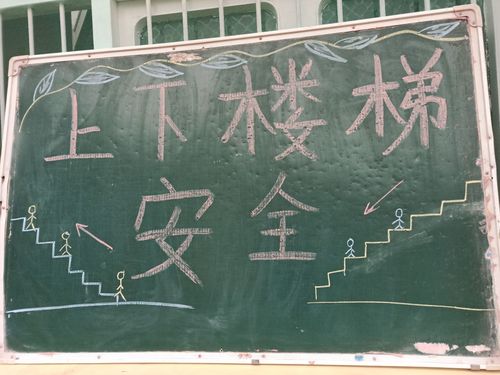 上下楼梯
安全